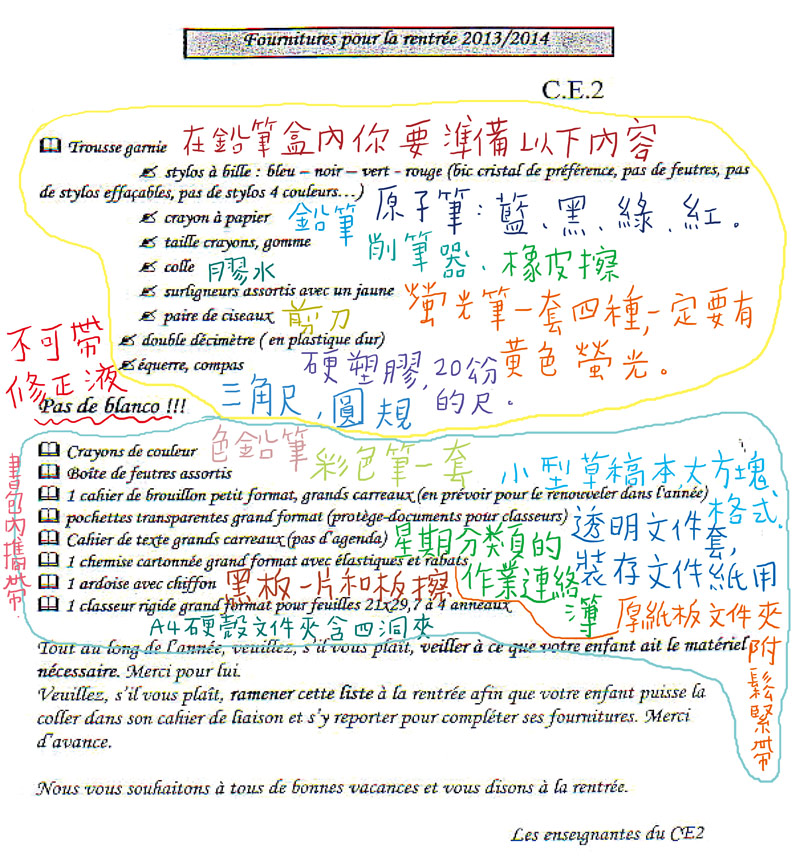 Fournitures pour la rentrée 2013/2014
C.E.2
Trousse garnie 在鉛筆盒內你要準備以下內容
stylos à bille : bleu – noir – vert - rouge (bic cristal de préférence, pas de feutres, pas
de stylos effaçables, pas de stylos 4 couleurs…)
原子筆:藍、黑、綠、紅。
crayon à papier 鉛筆
taille crayons, gomme 削筆器、橡皮擦
colle 膠水
surligneurs assortis avec un jaune
螢光筆一套四種,一定要有
黃色螢光。
paire de ciseaux 剪刀
double décimètre ( en plastique dur)
硬塑膠,20公分
的尺。
équerre, compas
三角尺,圓規
不可帶
修正液
Pas de blanco !!!
書包內攜帶
Crayons de couleur 色鉛筆
Boîte de feutres assortis 彩色筆一套
小型草稿本,大方塊
格式.
1 cahier de brouillon petit format, grands carreaux (en prévoir pour le renouveler dans l'année)
pochettes transparentes grand format (protège-documents pour classeurs)
透明文件套,
裝存文件紙用
Cahier de texte grands carreaux (pas d'agenda)
星期分類的
作業連絡
簿
1 chemise cartonnée grand format avec élastiques et rabats
厚紙板文件夾
附鬆緊帶
1 ardoise avec chiffon 黑板一片和板擦
1 classeur rigide grand format pour feuilles 21x29,7 à 4 anneaux
A4硬殼文件夾含四洞夾
Tout au long de l'année, veuillez, s'il vous plaît, veiller à ce que votre enfant ait le matériel
nécessaire. Merci pour lui.
Veuillez, s'il vous plaît, ramener cette liste à la rentrée afin que votre enfant puisse la
coller dans son cahier de liaison et s'y reporter pour compléter ses fournitures. Merci
d'avance.
Nous vous souhaitons à tous de bonnes vacances et vous disons à la rentrée.
Les enseignantes du CE2